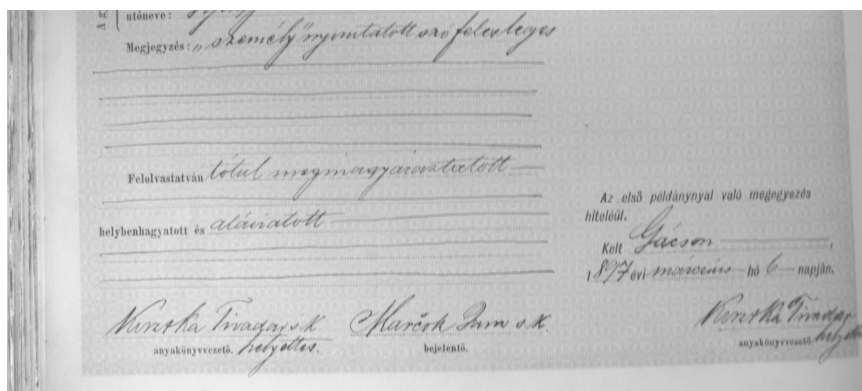 utóneve:
Megjegyzés: „személy" nyomtatott szó felesleges
Felolvastatván tótul megmagyaráztatott
helybenhagyatott és aláiratott
Az első példánynyal való megegyezés
hiteléül.
Kelt Gácson,
1897 évi március hó 6 napján.
Tivadar s.k. Marčok s.k. Tivadar
anyakönyvvezető. helyettes. bejelentő. anyakönyvvezető. helyettes